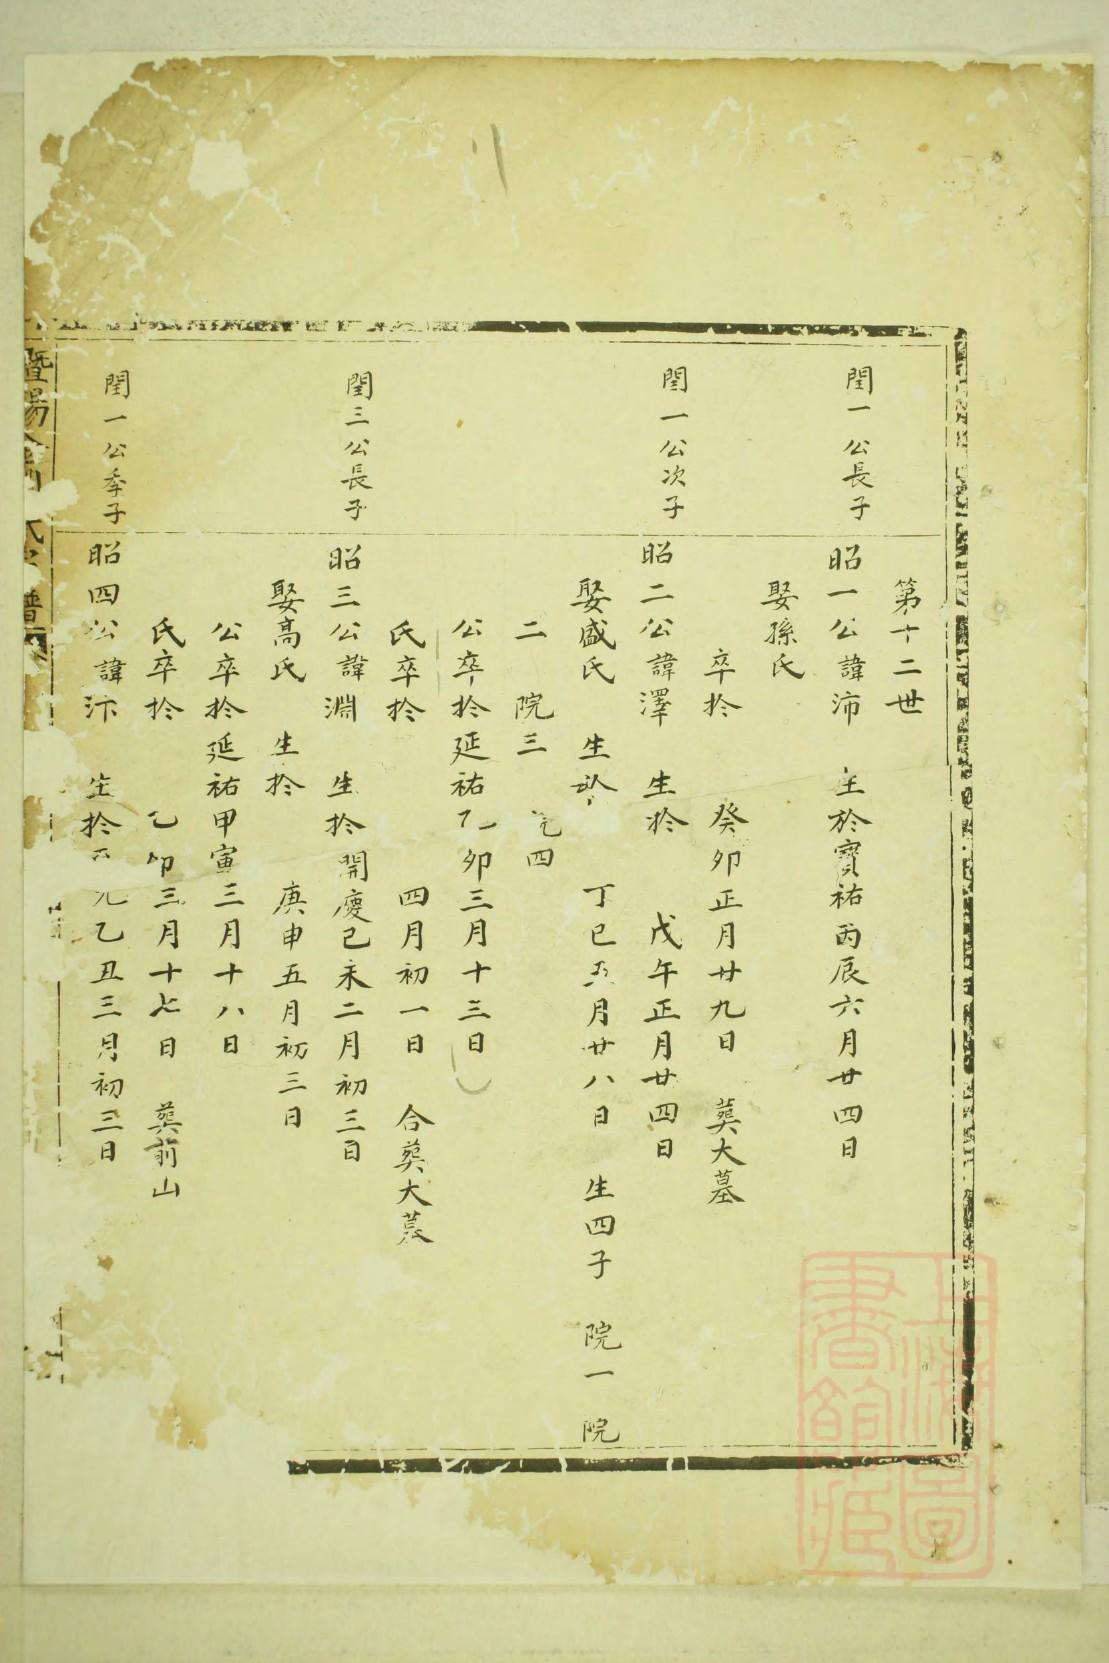 第十二世
閏一公長子
昭一公諱沛 生於寶祐丙辰六月廿四日
娶孫氏
卒扵 癸卯正月廿九日 葬大墓
閏一公次子
昭二公諱澤 生扵 戊午正月廿四日
娶盛氏 生扵 丁巳五月廿八日 生四子 院一 院
二 院三 院四
公卒扵延祐乙卯三月十三日
氏卒扵 四月初一日 合葬大墓
閏三公長子
昭三公諱淵 生扵開慶己未二月初三日
娶高氏 生扵 庚申五月初三日
公卒扵延祐甲寅三月十八日
氏卒扵 乙卯三月十七日 葬前山
閏一公季子
昭四公諱汴 生扵 乙丑三月初三日
暨陽 氏 譜
上海圖書館藏